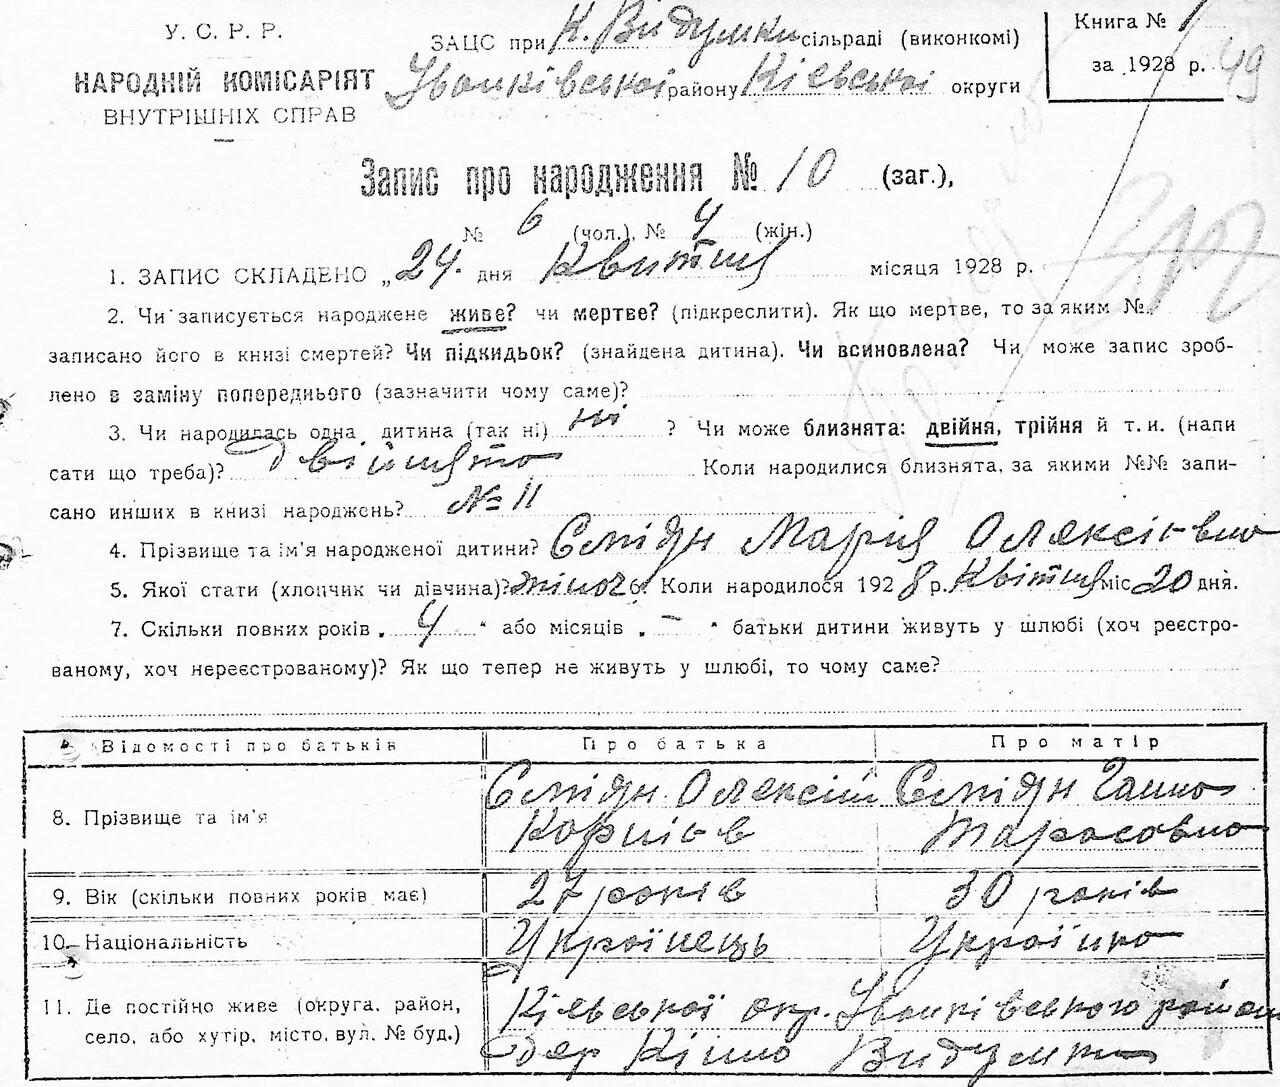 У. С. Р. Р.
НАРОДНІЙ КОМІСАРІЯТ
ВНУТРІШНІХ СПРАВ
ЗАЦС при К. Видумки сільраді (виконкомі)
Іванківської району Київської округи
Книга № 1
за 1928 р. 49
Запис про народження № 10 (заг.),
№ 6 (чол.), № 4 (жін.)
1. ЗАПИС СКЛАДЕНО „24. дня Квитня місяця 1928 р.
2. Чи записується народжене живе? чи мертве? (підкреслити). Як що мертве, то за яким №
записано його в книзі смертей? Чи підкидьок? (знайдена дитина). Чи всиновлена? Чи, може запис зроб-
лено в заміну попереднього (зазначити чому саме)?
3. Чи народилась одна дитина (так ні) ні ? Чи може близнята: двійня, трійня й т. и. (напи
сати що треба)? двійнята Коли народилися близнята, за якими №№ запи-
сано инших в книзі народжень? № 11
4. Прізвище та ім'я народженої дитини? Марія Олексіївна
5. Якої стати (хлопчик чи дівчина)? жіноч. Коли народилося 1928 р. Квітня міс 20 дня.
7. Скільки повних років „ 4 " або місяців „ – " батьки дитини живуть у шлюбі (хоч реєстро-
ваному, хоч нереєстрованому)? Як що тепер не живуть у шлюбі, то чому саме?
Відомості про батьків Про батька Про матір
8. Прізвище та ім'я Олексій Ганна
Тарасовна
9. Вік (скільки повних років має) 27 років 30 років
10. Національність Українець Українка
11. Де постійно живе (округа, район,
село, або хутір, місто, вул. № буд.)
Київської окр. Іванківського району
дер Видумка